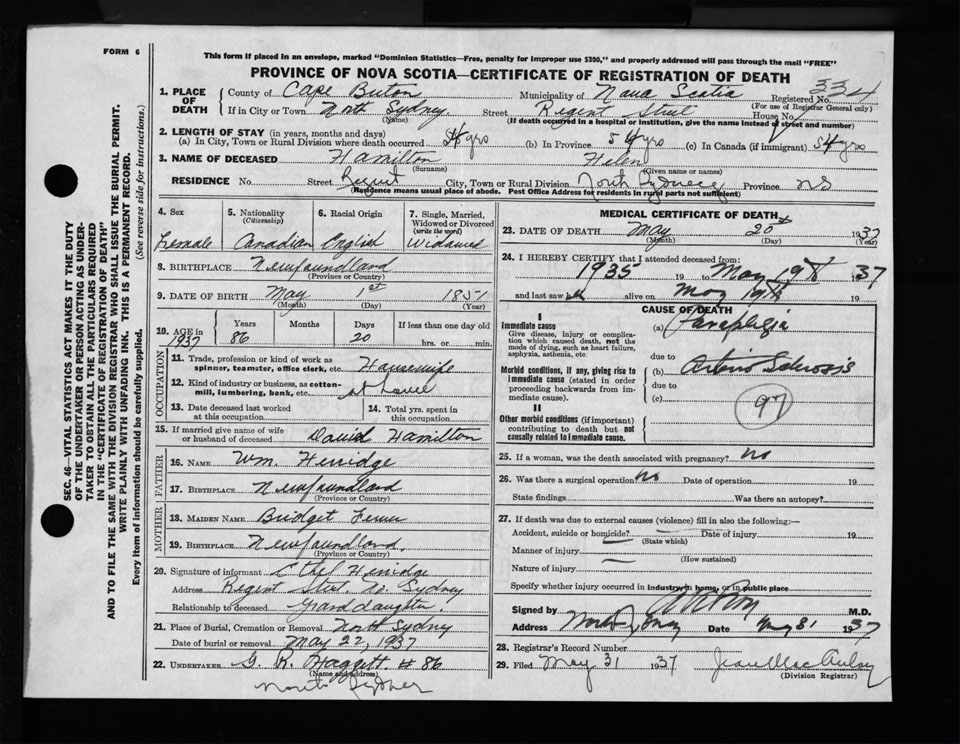 FORM 6
This form if placed in an envelope, marked "Dominion Statistics—Free, penalty for improper use $300," and properly addressed will pass through the mail "FREE"
PROVINCE OF NOVA SCOTIA—CERTIFICATE OF REGISTRATION OF DEATH
334
1. PLACE OF DEATH County of Cape Breton Municipality of Nova Scotia Registered No.
(For use of Registrar General only)
If in City or Town North Sydney Street Regent Street House No.
(Name) (If death occurred in a hospital or institution, give the name instead of street and number)
2. LENGTH OF STAY (in years, months and days)
(a) In City, Town or Rural Division where death occurred 54 yrs (b) In Province 54 yrs (c) In Canada (if immigrant) 54 yrs
3. NAME OF DECEASED Hamilton Helen
(Surname) (Given name or names)
RESIDENCE No. Street Regent City, Town or Rural Division North Sydney Province NS
(Residence means usual place of abode. Post Office Address for residents in rural parts not sufficient)
4. Sex 5. Nationality (Citizenship) 6. Racial Origin 7. Single, Married, Widowed or Divorced (write the word)
Female Canadian English Widowed
8. BIRTHPLACE Newfoundland
(Province or Country)
9. DATE OF BIRTH May 1st 1851
(Month) (Day) (Year)
10. AGE IN 1937 Years Months Days If less than one day old
86 20 hrs. or min.
OCCUPATION
11. Trade, profession or kind of work as spinner, teamster, office clerk, etc. Housewife
12. Kind of industry or business, as cotton-mill, lumbering, bank, etc. at home
13. Date deceased last worked at this occupation 14. Total yrs. spent in this occupation
15. If married give name of wife or husband of deceased David Hamilton
FATHER
16. NAME Wm. Herridge
17. BIRTHPLACE Newfoundland
(Province or Country)
MOTHER
18. MAIDEN NAME Bridget
19. BIRTHPLACE Newfoundland.
(Province or Country)
20. Signature of informant Ethel Herridge
Address Regent Street, No. Sydney
Relationship to deceased Granddaughter.
21. Place of Burial, Cremation or Removal North Sydney
Date of burial or removal May 22, 1937
22. UNDERTAKER G. R. Haggett # 86
(Name and address)
North Sydney
MEDICAL CERTIFICATE OF DEATH
23. DATE OF DEATH May 20 1937
(Month) (Day) (Year)
24. I HEREBY CERTIFY that I attended deceased from:
1935 19 to May 19th 1937
and last saw alive on May 19th 19
CAUSE OF DEATH
I
Immediate cause
Give disease, injury or complication which caused death, not the mode of dying, such as heart failure, asphyxia, asthenia, etc.
(a) Paraplegia
due to
Morbid conditions, if any, giving rise to immediate cause (stated in order proceeding backwards from immediate cause).
(b) Arterio Sclerosis
due to
(c)
97
II
Other morbid conditions (if important) contributing to death but not causally related to immediate cause.
25. If a woman, was the death associated with pregnancy? no
26. Was there a surgical operation? no Date of operation 19
State findings Was there an autopsy?
27. If death was due to external causes (violence) fill in also the following:—
Accident, suicide or homicide? Date of injury 19
(State which)
Manner of injury
(How sustained)
Nature of injury
Specify whether injury occurred in industry, in home, or in public place
Signed by M.D.
Address Date May 31 1937
28. Registrar's Record Number
29. Filed May 31 1937 Jean MacAulay
(Division Registrar)
SEC. 46—VITAL STATISTICS ACT MAKES IT THE DUTY
OF THE UNDERTAKER OR PERSON ACTING AS UNDER-
TAKER TO OBTAIN ALL THE PARTICULARS REQUIRED
IN THE "CERTIFICATE OF REGISTRATION OF DEATH"
AND TO FILE THE SAME WITH THE DIVISION REGISTRAR WHO SHALL ISSUE THE BURIAL PERMIT.
WRITE PLAINLY WITH UNFADING INK. THIS IS A PERMANENT RECORD.
Every item of information should be carefully supplied. (See reverse side for instructions.)